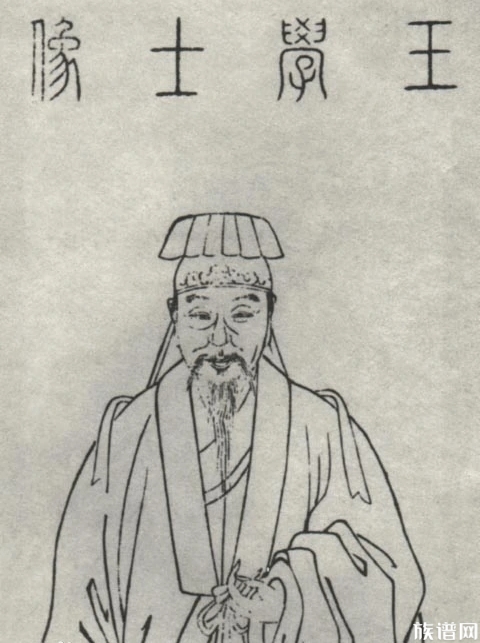 王學士像
族谱网